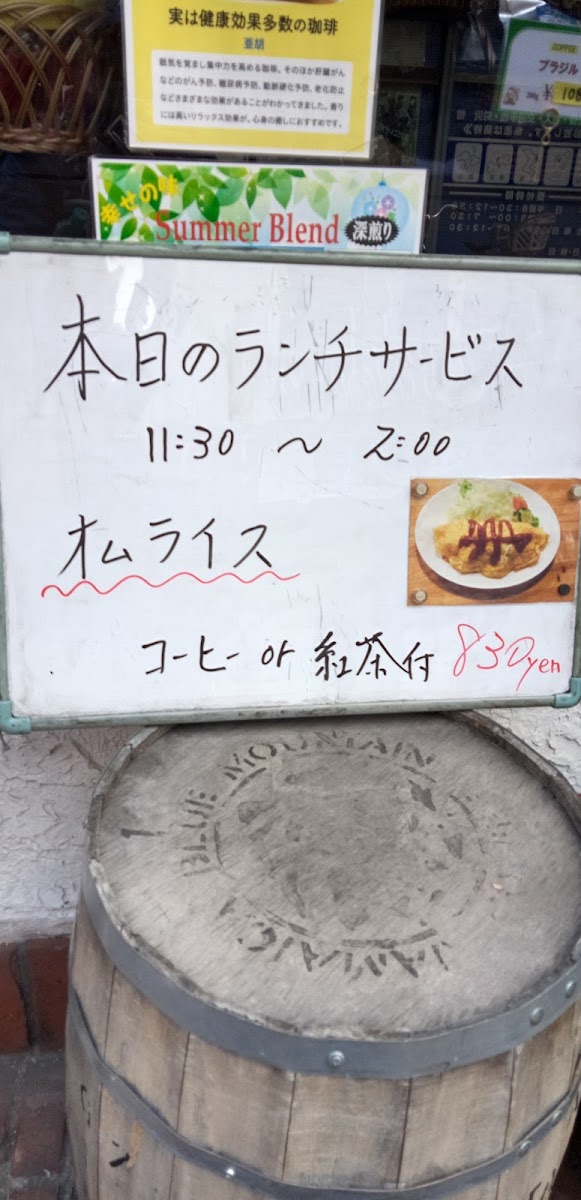 実は健康効果多数の珈琲
亜胡
眠気を覚まし集中力を高める珈琲。そのほか肝臓がん
などのがん予防、糖尿病予防、動脈硬化予防、老化防止
などさまざまな効果があることがわかってきました。香り
には高いリラックス効果が。心身の癒しにおすすめです。
COFFEE
ブラジル
幸せの味
Summer Blend
深煎り
本日のランチサービス
11:30 〜 2:00
オムライス
コーヒー or 紅茶付 830yen
BLUE MOUNTAIN
JAMAICA